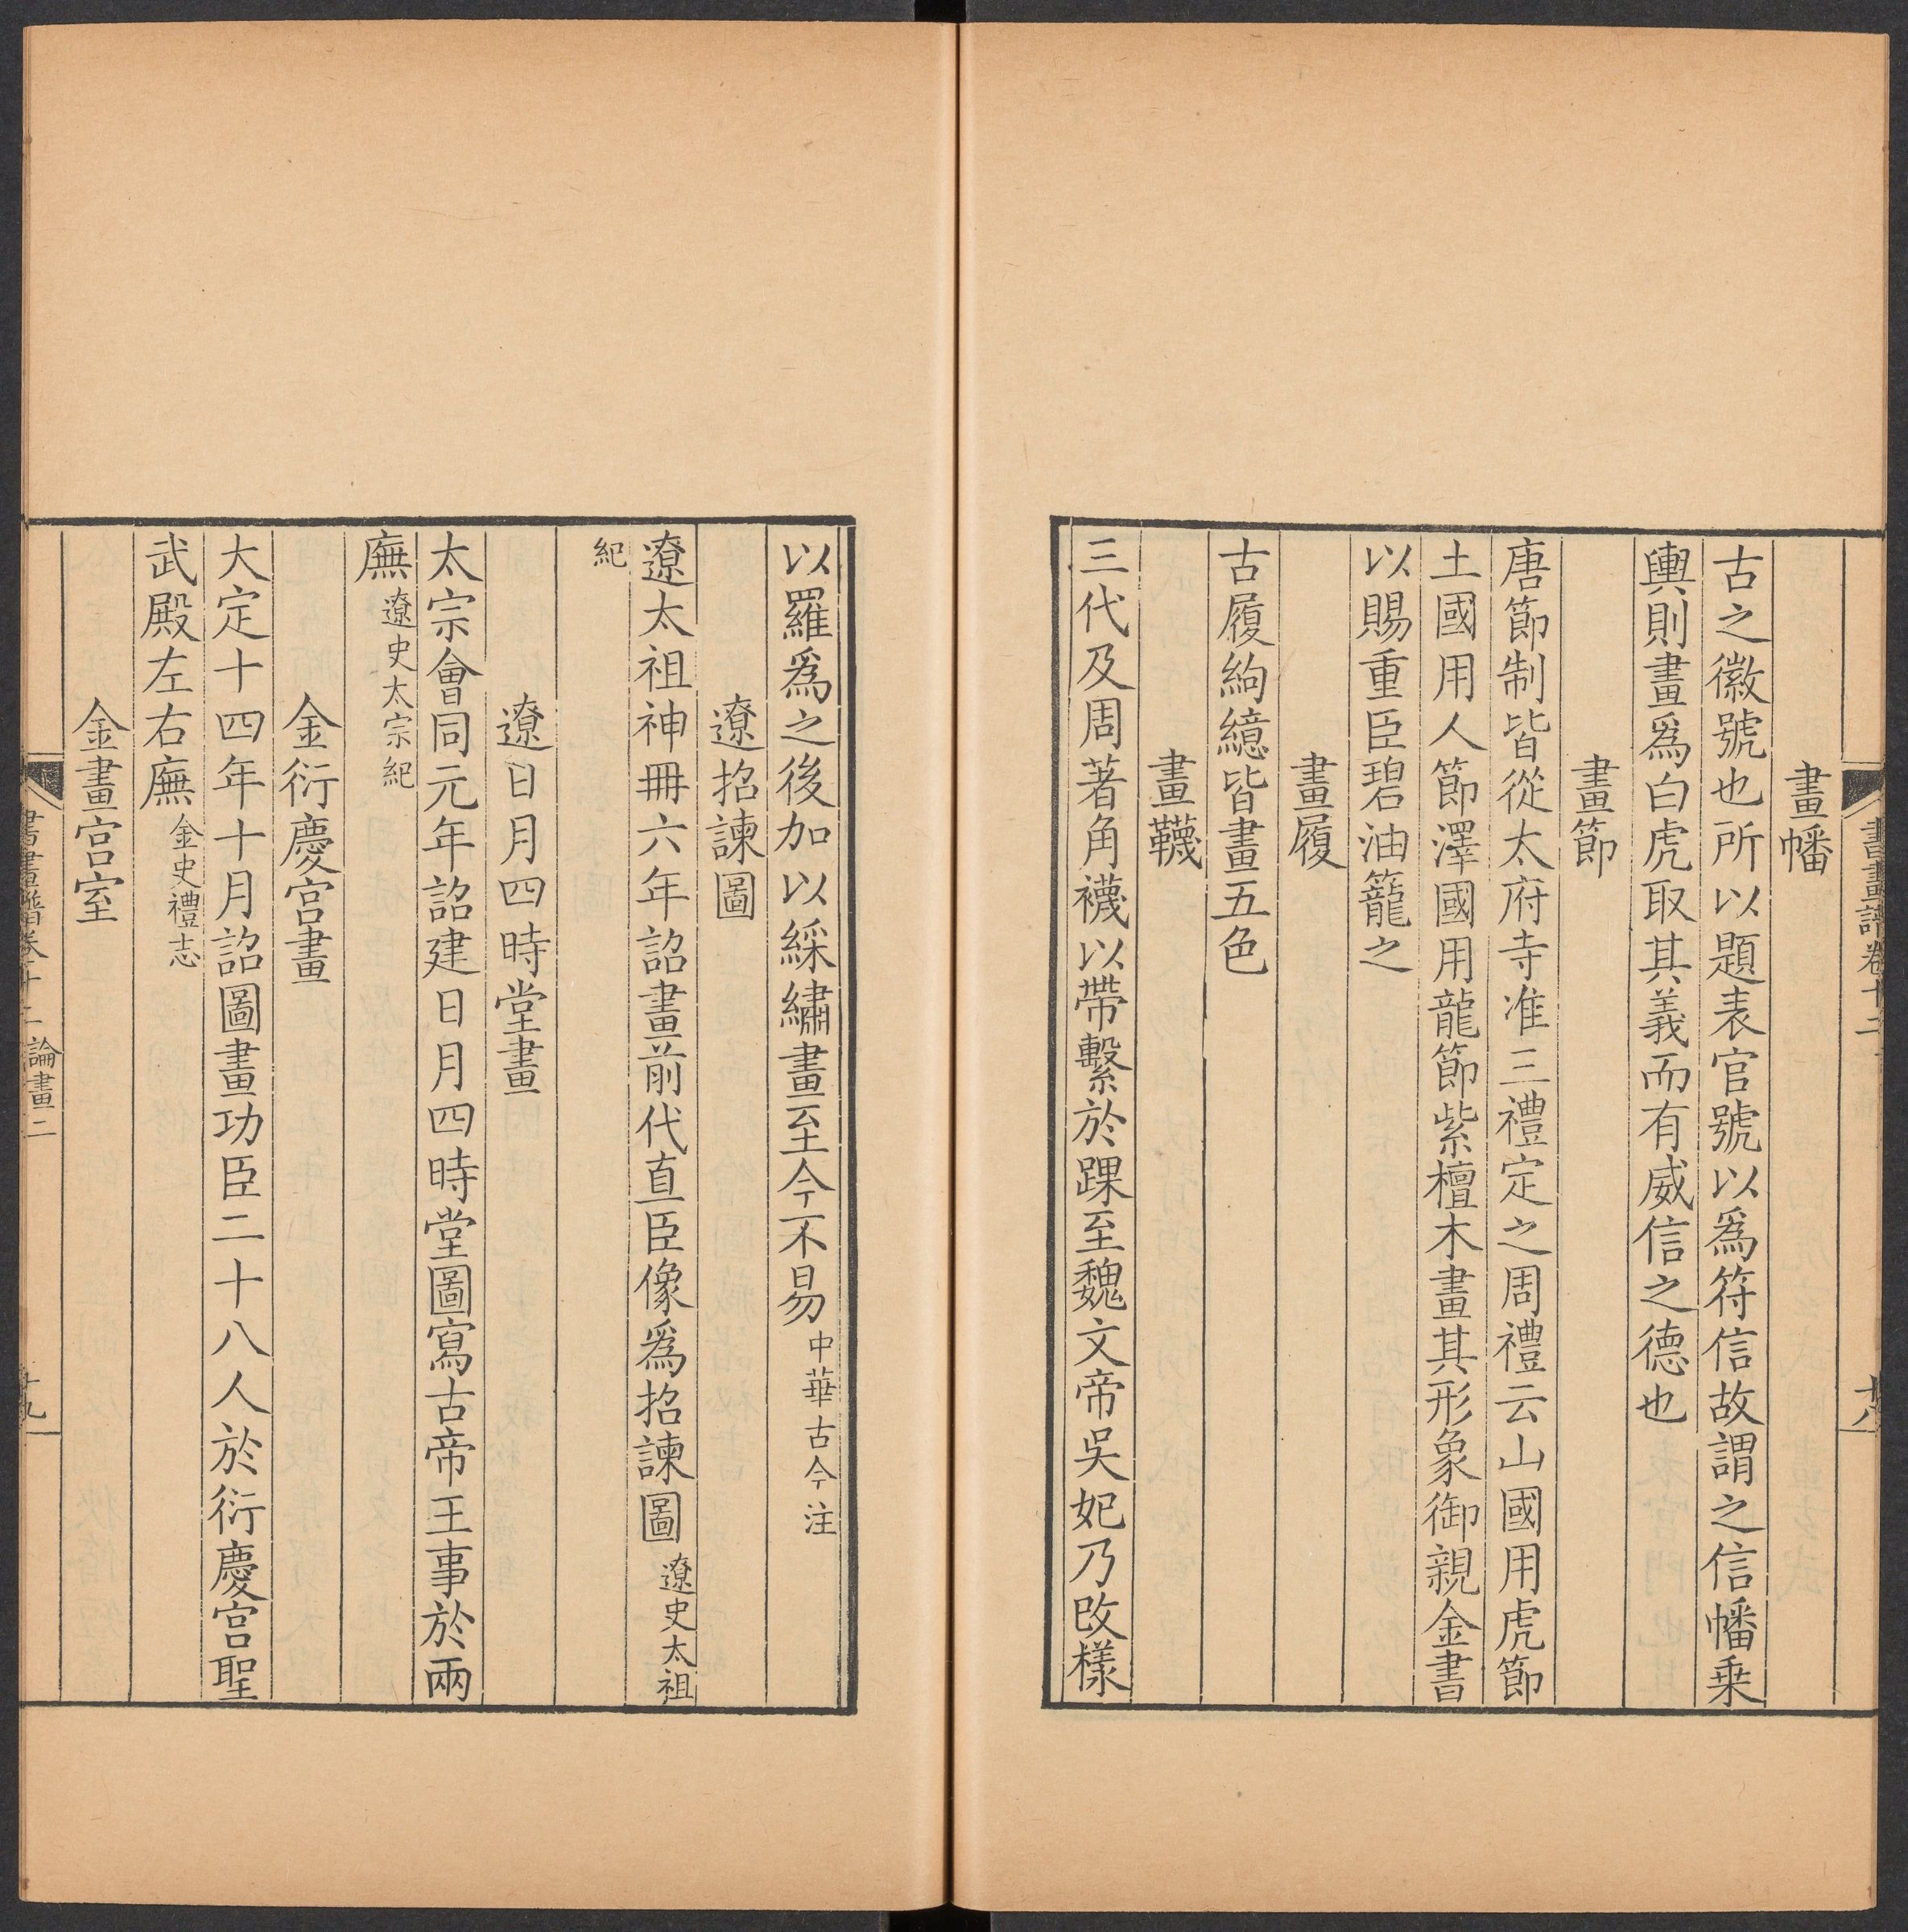 書畫譜卷十二
十八
畫幡
古之徽號也所以題表官號以爲符信故謂之信幡乗
輿則畫爲白虎取其義而有威信之德也
畫節
唐節制皆從太府寺准三禮定之周禮云山國用虎節
土國用人節澤國用龍節紫檀木畫其形象御親金書
以賜重臣碧油籠之
畫履
古履絇繶皆畫五色
畫韈
三代及周著角襪以帶繫於踝至魏文帝吳妃乃改様
以羅爲之後加以綵繡畫至今不易中華古今注
遼招諫圖
遼太祖神冊六年詔畫前代直臣像爲招諫圖遼史太祖
紀
遼日月四時堂畫
太宗會同元年詔建日月四時堂圖寫古帝王事於兩
廡遼史太宗紀
金衍慶宮畫
大定十四年十月詔圖畫功臣二十八人於衍慶宮聖
武殿左右廡金史禮志
金畫宮室
書畫譜卷十二 論畫二
十九